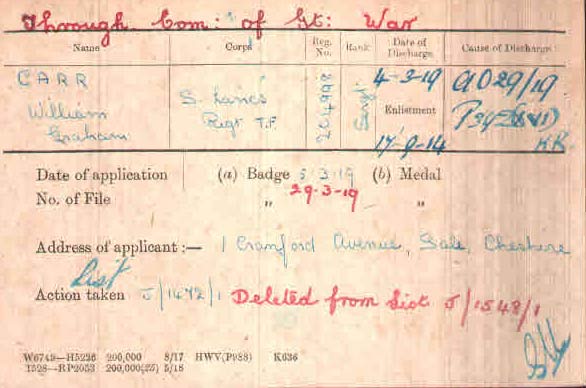 Through Com: of Gt: War
Name Corps Reg. No. Rank Date of Discharge Cause of Discharge
CARR S. Lancs 4-3-19 AO 29/19
William Regt T.F. Sergt Enlistment
Graham 17-9-14 KR
Date of application (a) Badge 5/3/19 (b) Medal
No. of File " 29-3-19 "
Address of applicant :— 1 Cranford Avenue, Sale, Cheshire
List
Action taken J/1472/1 Deleted from List J/1548/1
W6749—H5236 200,000 8/17 HWV(P988) K636
1528—RP2053 200,000(25) 5/18